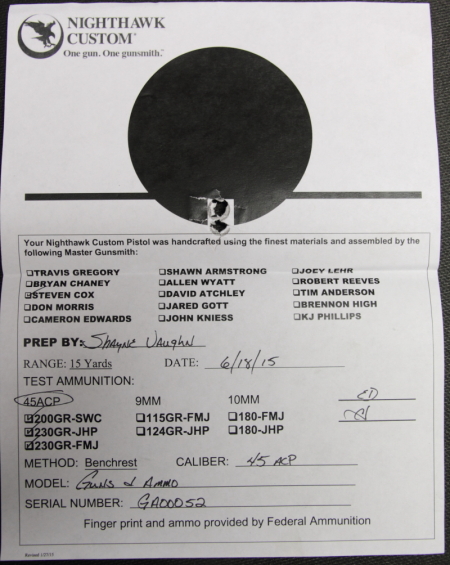 NIGHTHAWK
CUSTOM®
One gun. One gunsmith.™
Your Nighthawk Custom Pistol was handcrafted using the finest materials and assembled by the
following Master Gunsmith:
☐TRAVIS GREGORY ☐SHAWN ARMSTRONG ☐JOEY LEHR
☐BRYAN CHANEY ☐ALLEN WYATT ☐ROBERT REEVES
☒STEVEN COX ☐DAVID ATCHLEY ☐TIM ANDERSON
☐DON MORRIS ☐JARED GOTT ☐BRENNON HIGH
☐CAMERON EDWARDS ☐JOHN KNIESS ☐KJ PHILLIPS
PREP BY: Shayne Vaughn
RANGE: 15 Yards DATE: 6/18/15
TEST AMMUNITION:
45ACP 9MM 10MM
☒200GR-SWC ☐115GR-FMJ ☐180-FMJ
☒230GR-JHP ☐124GR-JHP ☐180-JHP
☒230GR-FMJ
METHOD: Benchrest CALIBER: 45 ACP
MODEL: Guns & Ammo
SERIAL NUMBER: GA00052
Finger print and ammo provided by Federal Ammunition